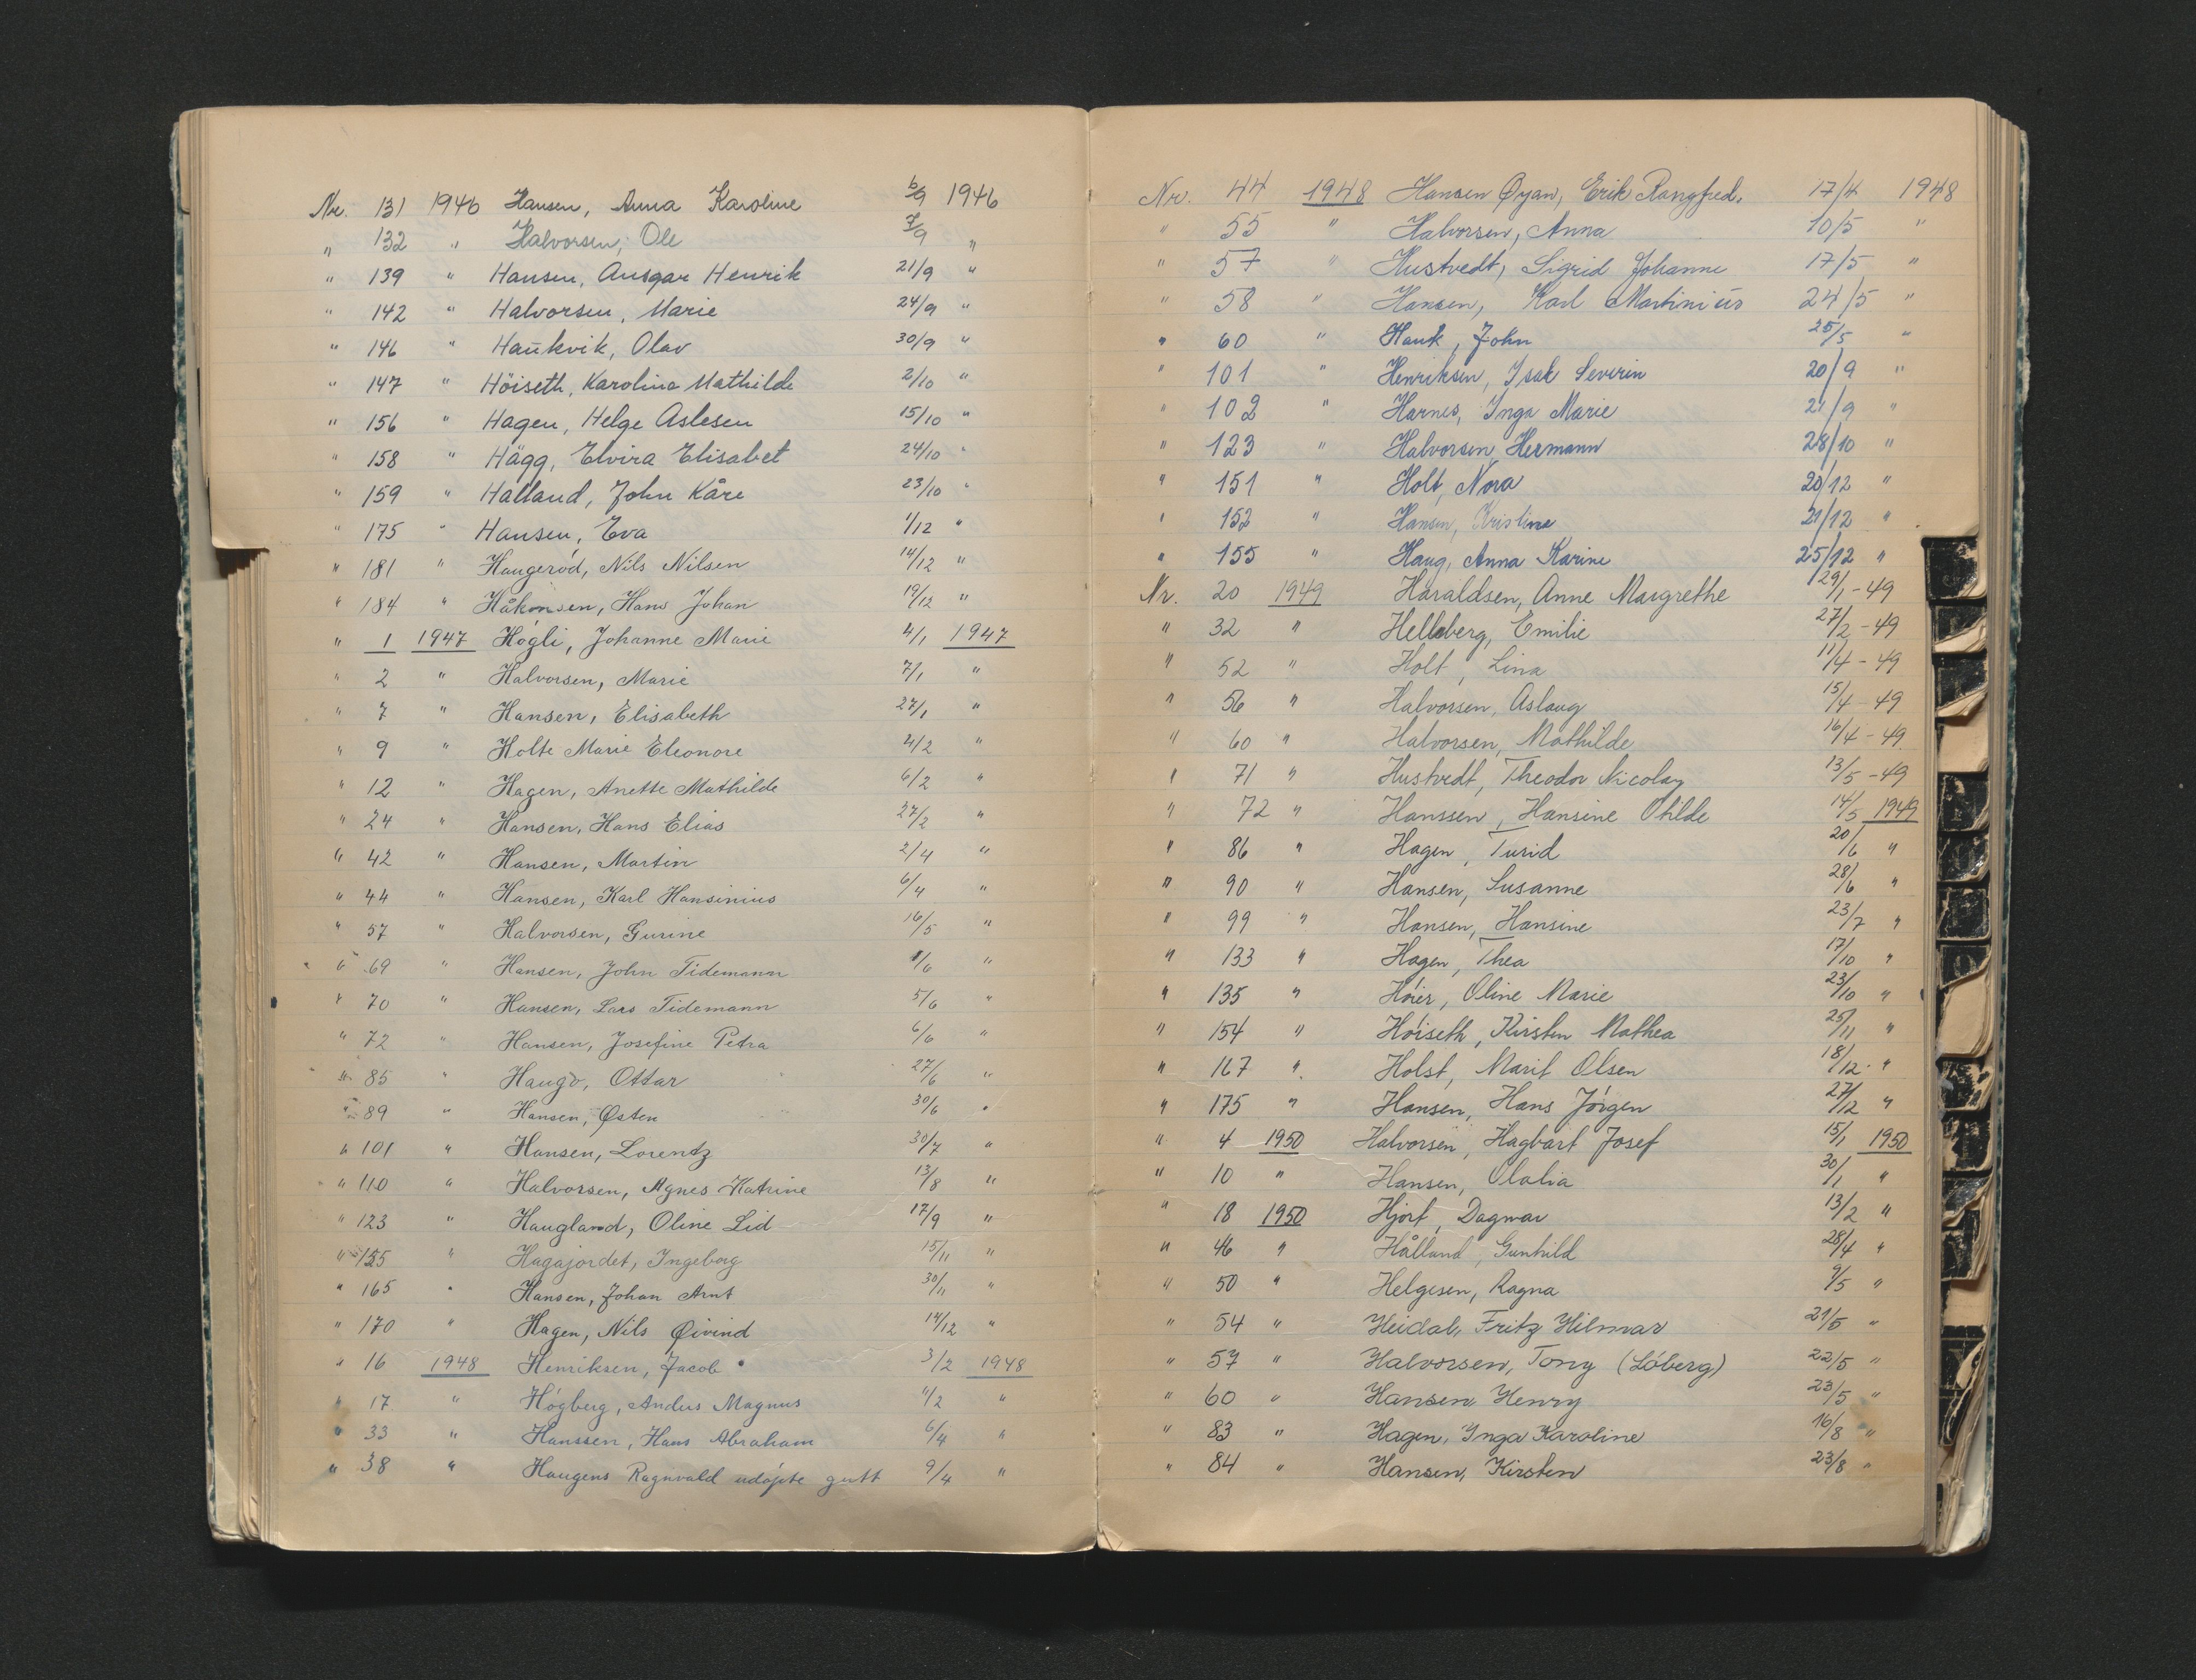 Nr. 131 1946 Hansen, Anna Karoline 6/9 1946
" 132 " Halvorsen, Ole 7/9 "
" 139 " Hansen, Ansgar Henrik 21/9 "
" 142 " Halvorsen, Marie 24/9 "
" 146 " Haukvik, Olav 30/9 "
" 147 " Höiseth, Karolina Mathilde 2/10 "
" 156 " Hagen, Helge Aslesen 15/10 "
" 158 " Hägg, Elvira Elisabet 24/10 "
" 159 " Halland, John Kåre 23/10 "
" 175 " Hansen, Eva 1/12 "
" 181 " Haugeród, Nils Nilsen 14/12 "
" 184 " Håkonsen, Hans Johan 19/12 "
" 1 1947 Hógli, Johanne Marie 4/1 1947
" 2 " Halvorsen, Marie 7/1 "
" 7 " Hansen, Elisabeth 27/1 "
" 9 " Holte Marie Eleonore 4/2 "
" 12 " Hagen, Anette Mathilde 6/2 "
" 24 " Hansen, Hans Elias 27/2 "
" 42 " Hansen, Martin 2/4 "
" 44 " Hansen, Karl Hansinius 6/4 "
" 57 " Halvorsen, Gurine 16/5 "
" 69 " Hansen, John Tidemann /6 "
" 70 " Hansen, Lars Tidemann 5/6 "
" 72 " Hansen, Josefine Petra 6/6 "
" 85 " Haugo, Ottar 27/6 "
" 89 " Hansen, Østen 30/6 "
" 101 " Hansen, Lorentz 30/7 "
" 110 " Halvorsen, Agnes Katrine 13/8 "
" 123 " Haugland, Oline Lid 17/9 "
" 155 " Hagajordet, Ingeborg 15/11 "
" 165 " Hansen, Johan Arnt 30/11 "
" 170 " Hagen, Nils Øivind 14/12 "
" 16 1948 Henriksen, Jacob 3/2 1948
" 17 " Hógberg, Anders Magnus 11/2 "
" 33 " Hanssen, Hans Abraham 6/4 "
" 38 " Haugens Ragnvald udópte gutt 9/4 "
Nr. 44 1948 Hansen Øyan, Erik Rangfred. 17/4 1948
" 55 " Halvorsen, Anna 10/5 "
" 57 " Hustvedt, Sigrid Johanne 17/5 "
" 58 " Hansen, Karl Martinius 24/5 "
" 60 " Hauk, John 25/5 "
" 101 " Henriksen, Isak Severin 20/9 "
" 102 " Harnes, Inga Marie 21/9 "
" 123 " Halvorsen, Hermann 28/10 "
" 151 " Holt, Nora 20/12 "
" 152 " Hansen, Kristine 21/12 "
" 155 " Haug, Anna Karine 25/12 "
Nr. 20 1949 Haraldsen, Anne Margrethe 29/1 - 49
" 32 " Helleberg, Emilie 27/2 - 49
" 52 " Holt, Lina 11/4 - 49
" 56 " Halvorsen, Aslaug 15/4 - 49
" 60 " Halvorsen, Mathilde 16/4 - 49
" 71 " Hustvedt, Theodor Nicolay 13/5 - 49
" 72 " Hanssen, Hansine Othilde 14/5 1949
" 86 " Hagen, Turid 20/6 "
" 90 " Hansen, Susanne 28/6 "
" 99 " Hansen, Hansine 23/7 "
" 133 " Hagen, Thea 17/10 "
" 135 " Hóier, Oline Marie 23/10 "
" 154 " Hóiseth, Kirsten Mathea 25/11 "
" 167 " Holst, Marit Olsen 18/12 "
" 175 " Hansen, Hans Jórgen 27/12 "
" 4 1950 Halvorsen, Hagbart Josef 15/1 1950
" 10 " Hansen, Olalia 30/1 "
" 18 1950 Hjort, Dagmar 13/2 "
" 46 " Hålland, Gunhild 28/4 "
" 50 " Helgesen, Ragna 9/5 "
" 54 " Heidal, Fritz Hilmar 21/5 "
" 57 " Halvorsen, Tony (Lóberg) 22/5 "
" 60 " Hansen Henry 23/5 "
" 83 " Hagen, Inga Karoline 16/8 "
" 84 " Hansen, Kirsten 23/8 "